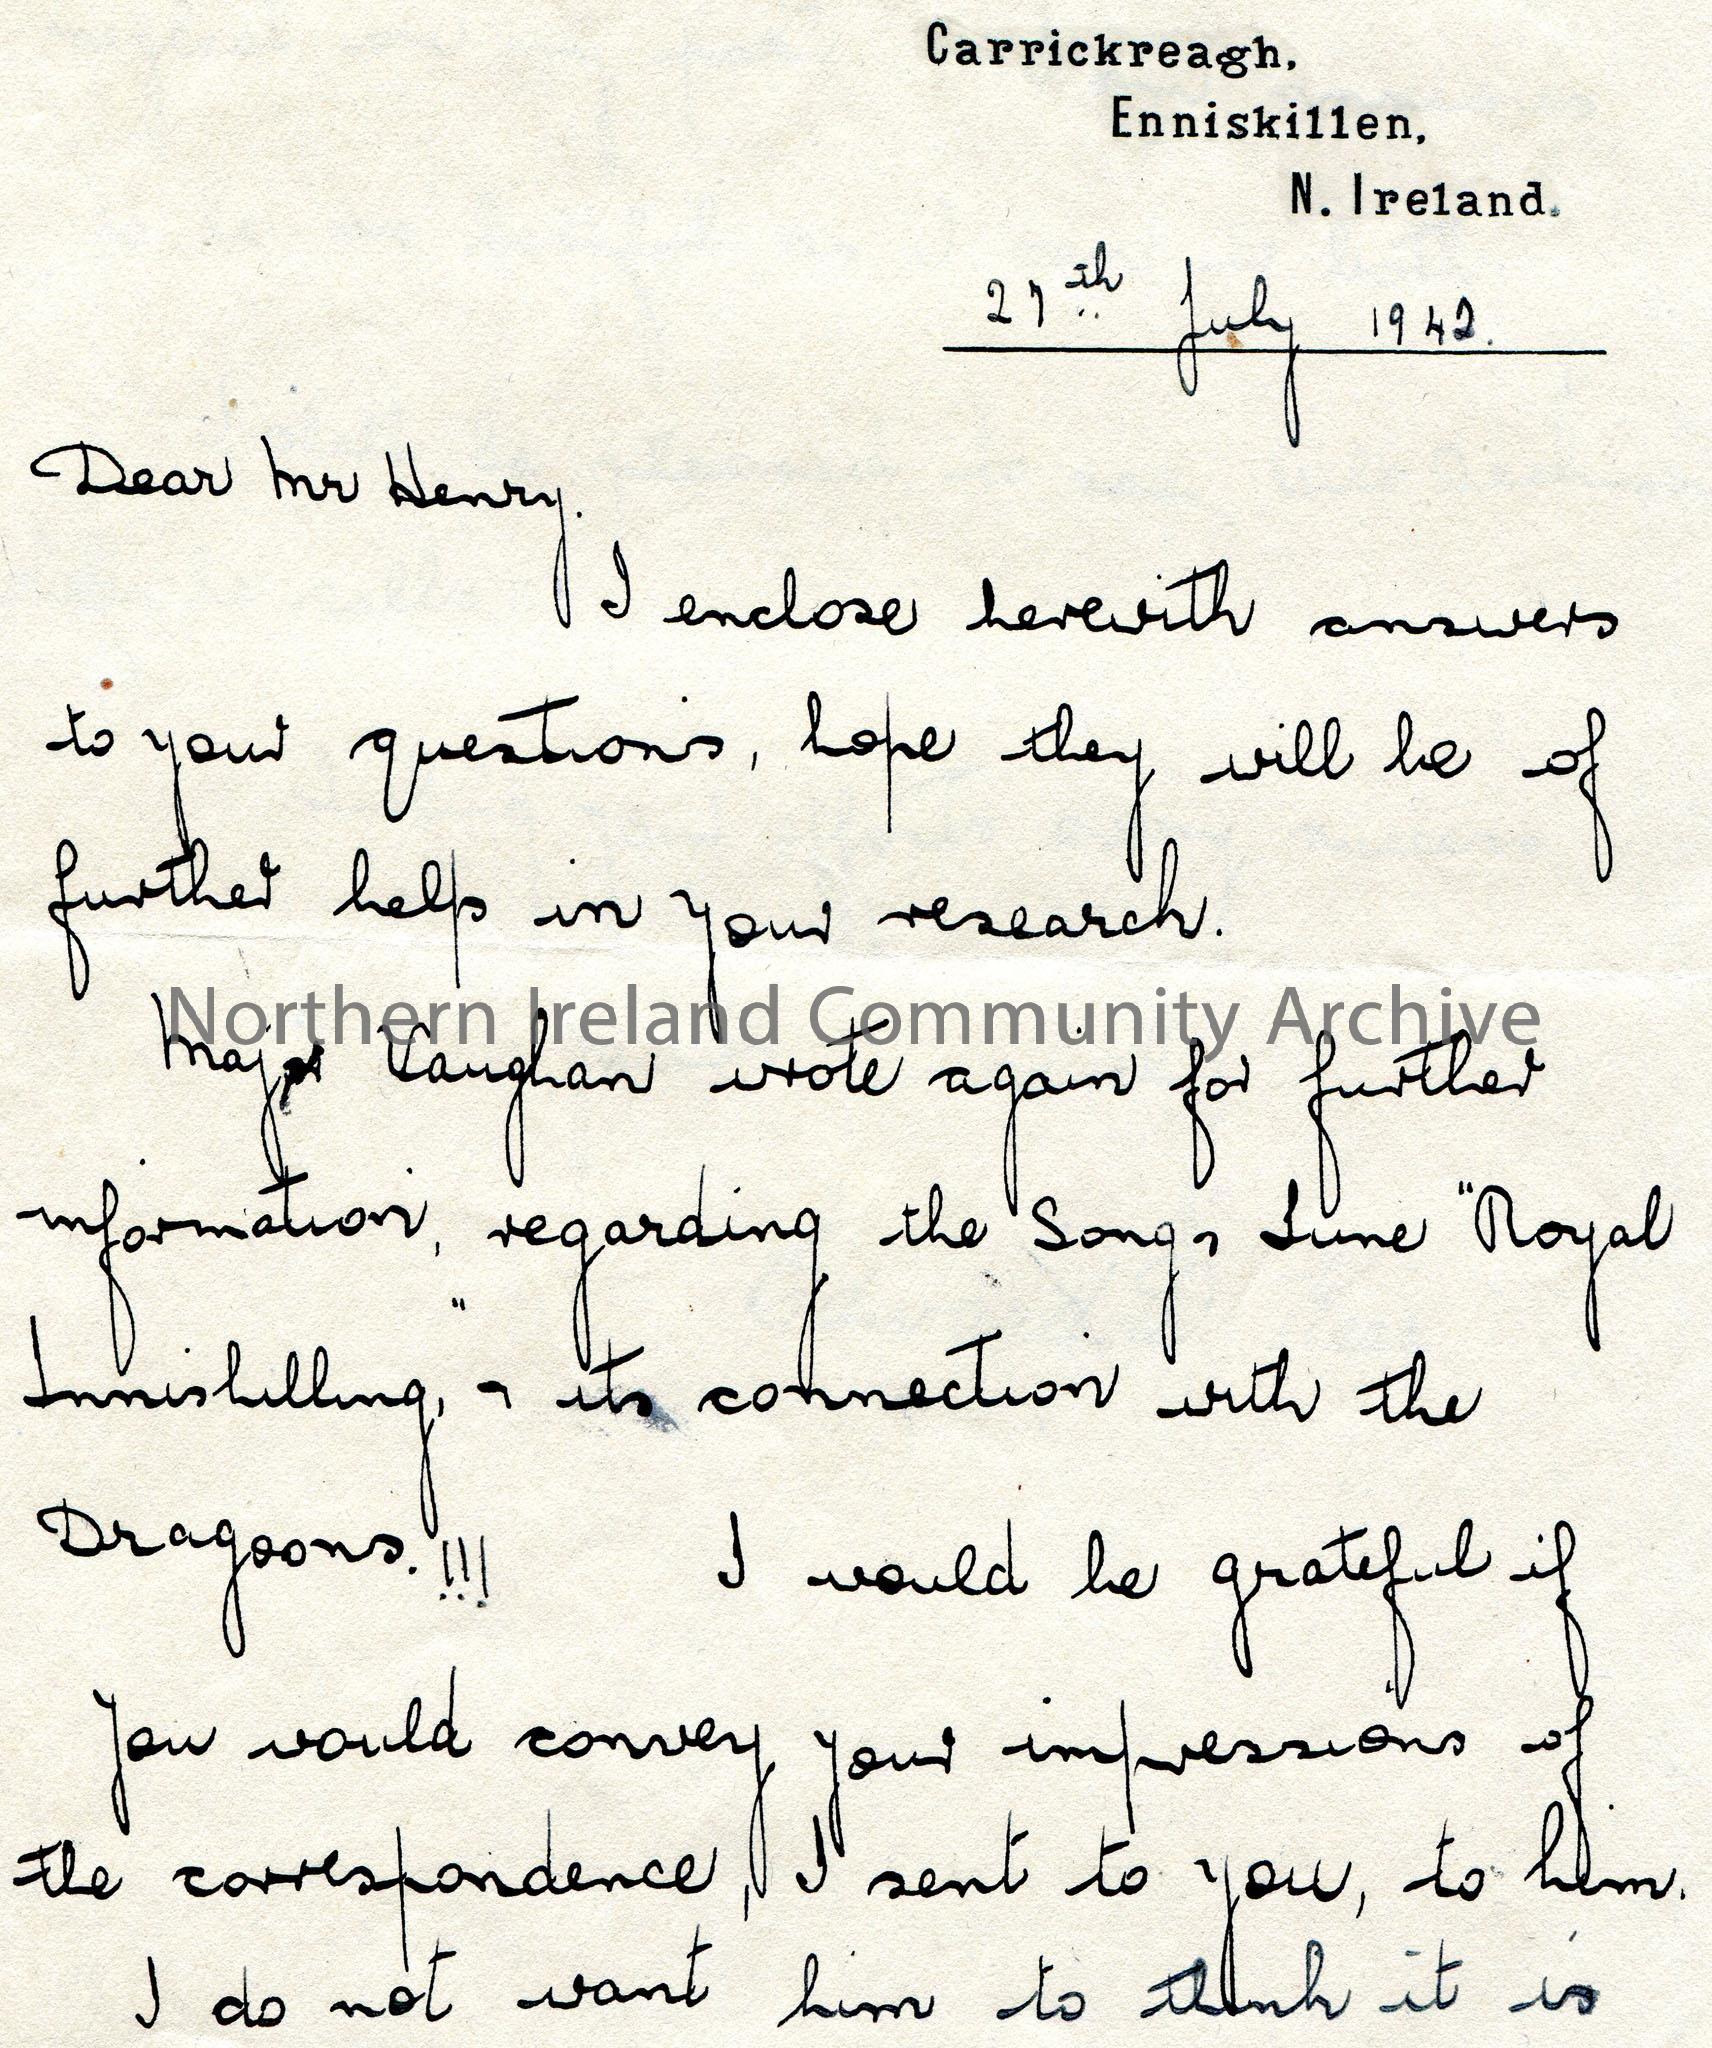 Carrickreagh,
Enniskillen,
N. Ireland.
27th July 1942.
Dear Mr Henry.
I enclose herewith answers
to your questions, hope they will be of
further help in your research.
Northern Ireland Community Archive
Major Vaughan wrote again for further
information, regarding the Song & Tune "Royal
Inniskilling," & its connection with the
Dragoons.!!! I would be grateful if
you would convey your impressions of
the correspondence, I sent to you, to him.
I do not want him to think it is